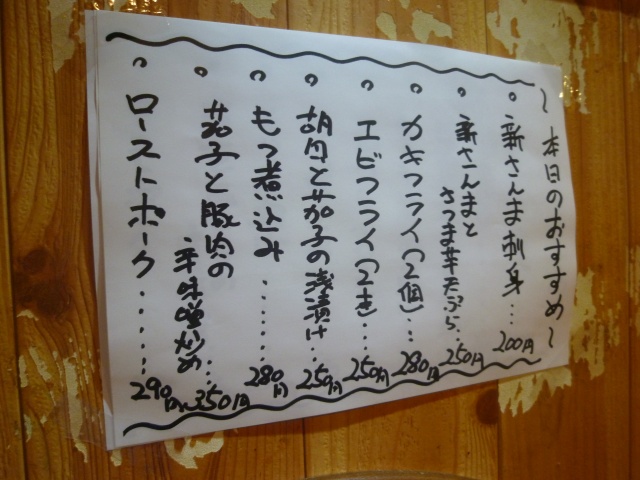 ~本日のおすすめ~
。新さんま刺身...200円
。新さんまと
さつま芋天ぷら..250円
。カキフライ(2個)...280円
。エビフライ(2本)...250円
。胡瓜と茄子の浅漬け...250円
。もつ煮込み......280円
。茄子と豚肉の
辛味噌炒め...350円
。ローストポーク......290円